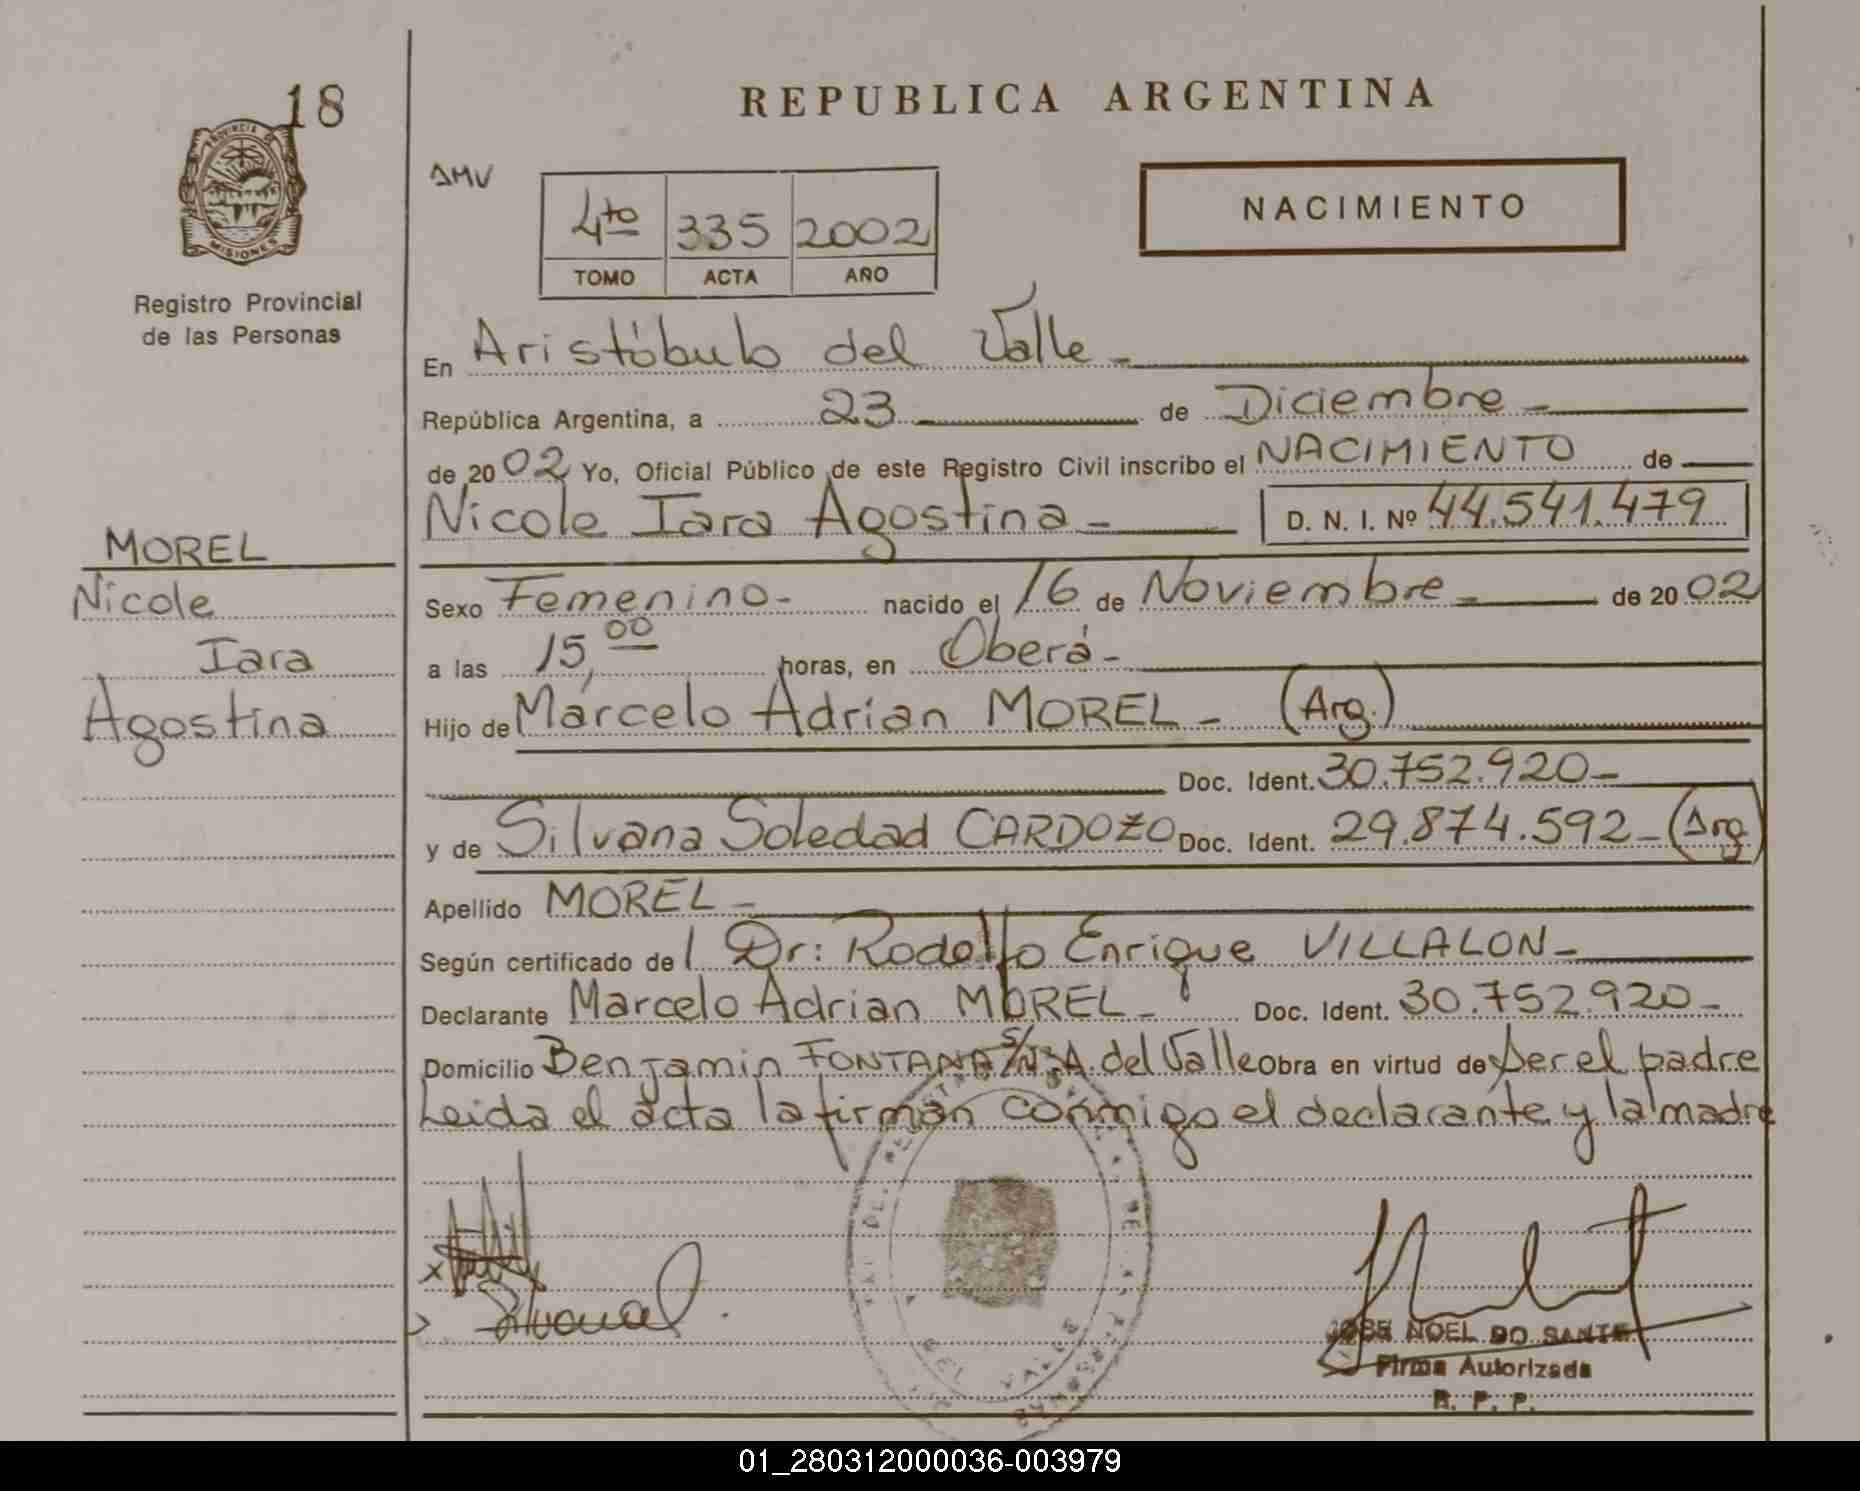 18
PROVINCIA DE
MISIONES
Registro Provincial
de las Personas
MOREL
Nicole
Iara
Agostina
REPUBLICA ARGENTINA
AMV
4to 335 2002
TOMO ACTA AÑO
NACIMIENTO
En Aristóbulo del Valle-
República Argentina, a 23 de Diciembre-
de 2002 Yo, Oficial Público de este Registro Civil inscribo el NACIMIENTO de
Nicole Iara Agostina- D. N. I. Nº 44.541.479
Sexo Femenino- nacido el 16 de Noviembre- de 2002
a las 15,00 horas, en Oberá-
Hijo de Marcelo Adrian MOREL- (Arg.)
Doc. Ident. 30.752.920-
y de Silvana Soledad CARDOZO Doc. Ident. 29.874.592-(Arg.
Apellido MOREL-
Según certificado del Dr: Rodolfo Enrique VILLALON-
Declarante Marcelo Adrian MOREL- Doc. Ident. 30.752.920-
Domicilio Benjamin FONTANA S/Nº A. del Valle Obra en virtud de ser el padre
Leida el acta la firman conmigo el declarante y la madre
JOSE NOEL DO SANTE
Firma Autorizada
R. P. P.
01_280312000036-003979